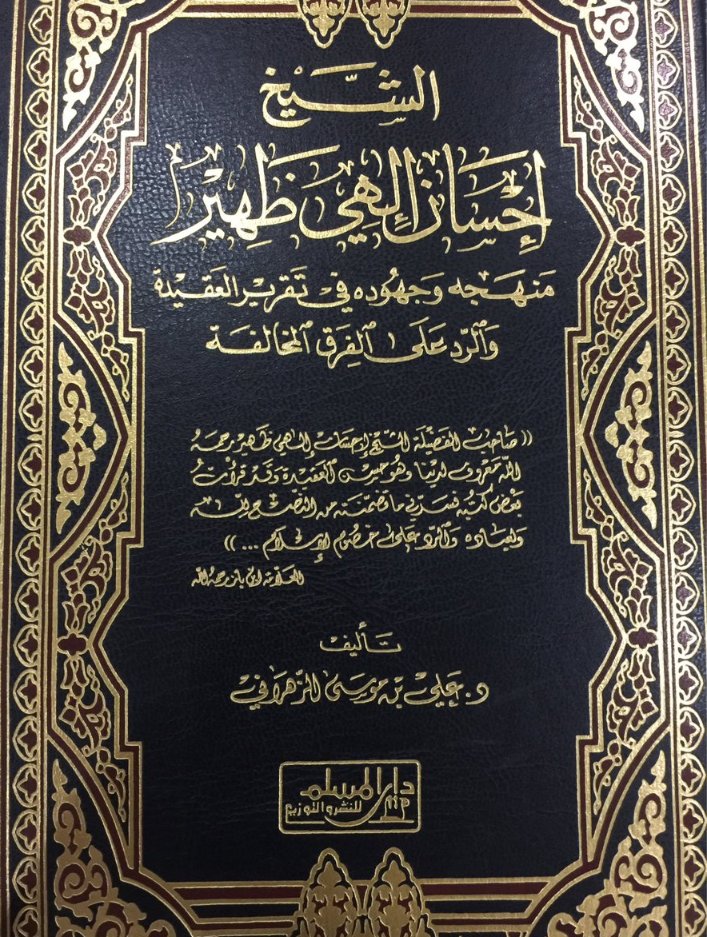 الشَّيْخ
إِحْسَان إِلٰهِي ظَهِيْر
مَنهَجه وَجهُوده فِي تَقرير العَقيْدة
وَٱلرّد عَلَى ٱلفِرَق ٱلمخَالفَة
(( صَاحب الفَضِيْلَة الشيْخ إحسَان إلهي ظَهير رحمَه
الله مَعْروف لدينَا وهُو حسَن ٱلعَقيدة وَقد قرأتُ
بَعْض كتبه فسَرني ما تضمّنَته من النّصْح لله
ولعباده وَٱلرّد عَلَى خصُوم الإسْلَام ... ))
العَلّامة ابن باز رحمه الله
تَأليف
د. عَلي بن مُوسَى الزّهرَاني
دار المسلم
للنشر والتوزيع